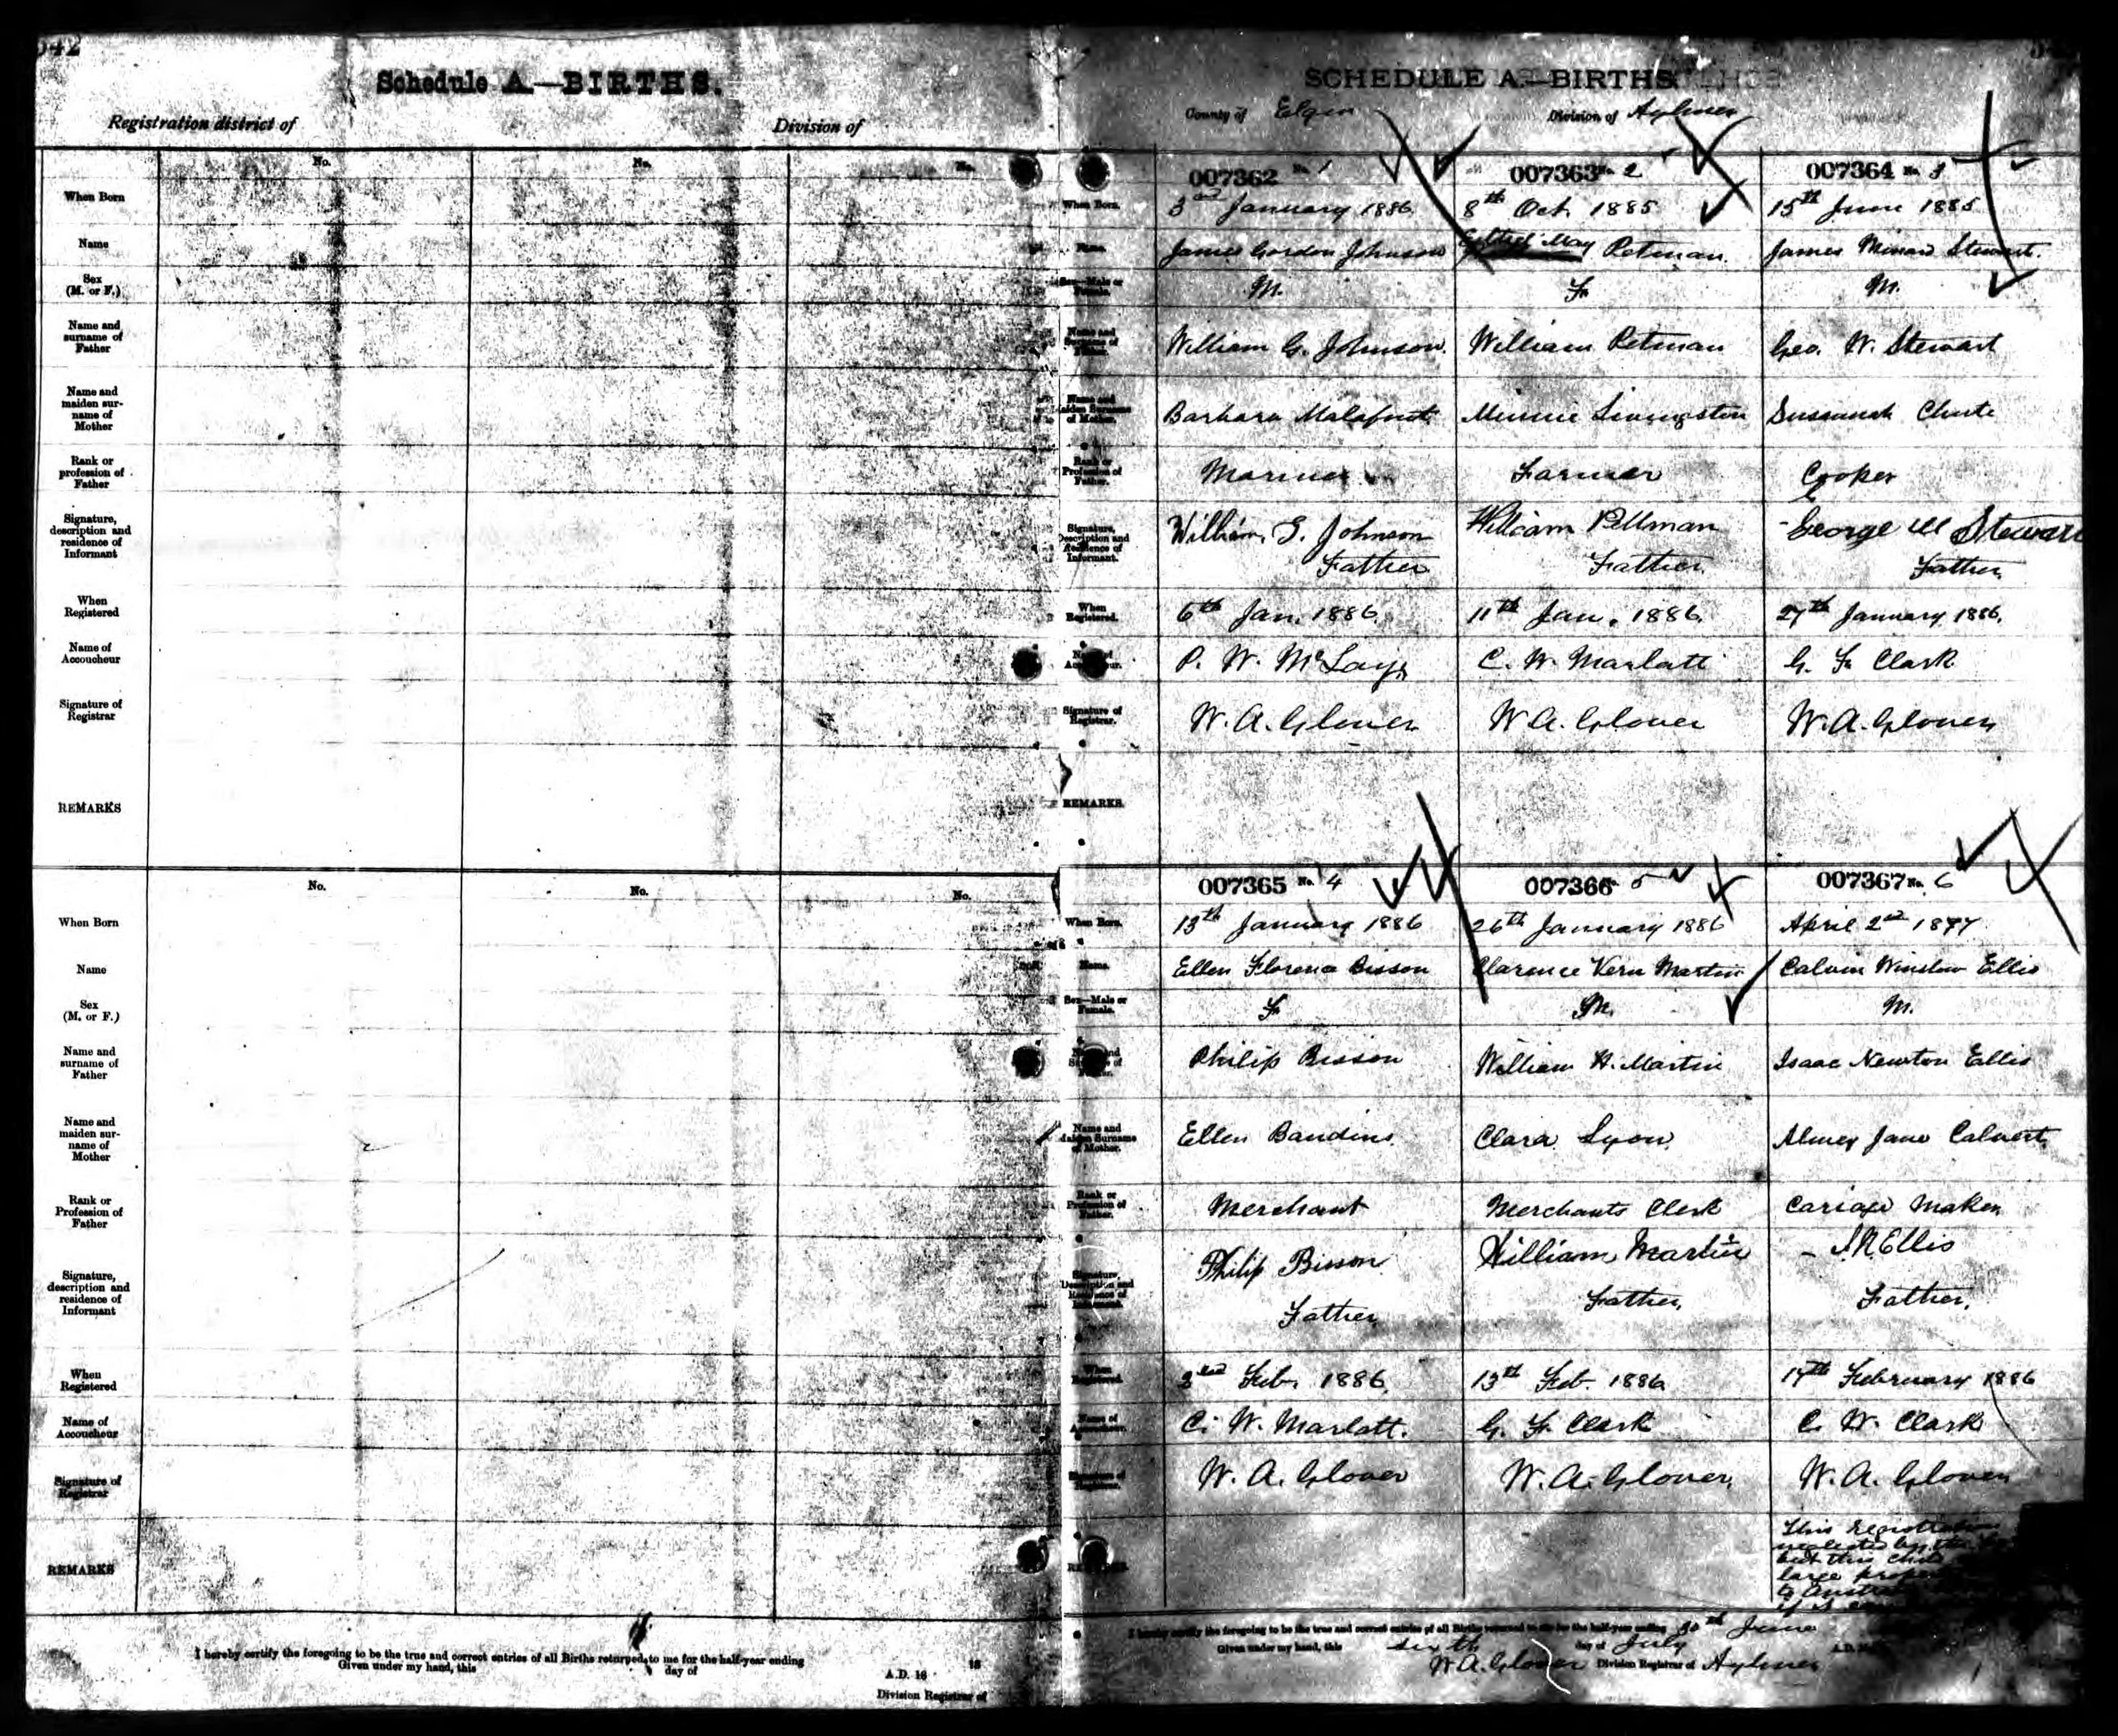 542
Schedule A.—BIRTHS.
Registration district of
Division of
No. No. No.
When Born
Name
Sex
(M. or F.)
Name and
surname of
Father
Name and
maiden sur-
name of
Mother
Rank or
profession of
Father
Signature,
description and
residence of
Informant
When
Registered
Name of
Accoucheur
Signature of
Registrar
REMARKS
No. No. No.
When Born
Name
Sex
(M. or F.)
Name and
surname of
Father
Name and
maiden sur-
name of
Mother
Rank or
Profession of
Father
Signature,
description and
residence of
Informant
When
Registered
Name of
Accoucheur
Signature of
Registrar
REMARKS
I hereby certify the foregoing to be the true and correct entries of all Births returned to me for the half-year ending 18
Given under my hand, this day of A.D. 18
Division Registrar of
SCHEDULE A.—BIRTHS
County of Elgin Division of Aylmer
007362 No. 1 007363 No. 2 007364 No. 3
When Born. 3rd January 1886. 8th Oct. 1885 15th June 1885
Name. James Gordon Johnson May Petman. James Minard Stewart.
Sex—Male or Female. M. F. M.
Name and Surname of Father. William G. Johnson. William Petman Geo. W. Stewart
Name and Maiden Surname of Mother. Barbara Minnie Livingston Susannah Chute
Rank or Profession of Father. Mariner Farmer Cooper
Signature, Description and Residence of Informant. William G. Johnson William Petman George W Stewart
Father Father. Father.
When Registered. 6th Jan. 1886. 11th Jan. 1886. 27th January 1886.
Name of Accoucheur. P. W. McLay C. W. Marlatt G. F. Clark
Signature of Registrar. W. A. Glover W. A. Glover W. A. Glover
REMARKS.
007365 No. 4 007366 5 007367 No. 6
When Born. 13th January 1886 26th January 1886 April 2nd 1877.
Name. Ellen Florence Bisson Clarence Vern Martin Calvin Winslow Ellis
Sex—Male or Female. F. M. M.
Philip Bisson William H. Martin Isaac Newton Ellis
Name and Maiden Surname of Mother. Ellen Baudins. Clara Lyon Jane Calvert
Rank or Profession of Father. Merchant Merchants Clerk Cariage Maker
Signature, Description and Residence of Informant. Philip Bisson William Martin Ellis
Father Father. Father.
When Registered. Feb. 1886. 13th Feb. 1886 17th February 1886
Name of C. W. Marlatt. G. F. Clark C. W. Clark
Signature of Registrar. W. A. Glover W. A. Glover. W. A. Glover
This Registration
neglected by the
but this child
large
to
if it
I hereby certify the foregoing to be the true and correct entries of all Births returned to me for the half-year ending 30th June
Given under my hand, this sixth day of July
W A Glover Division Registrar of Aylmer